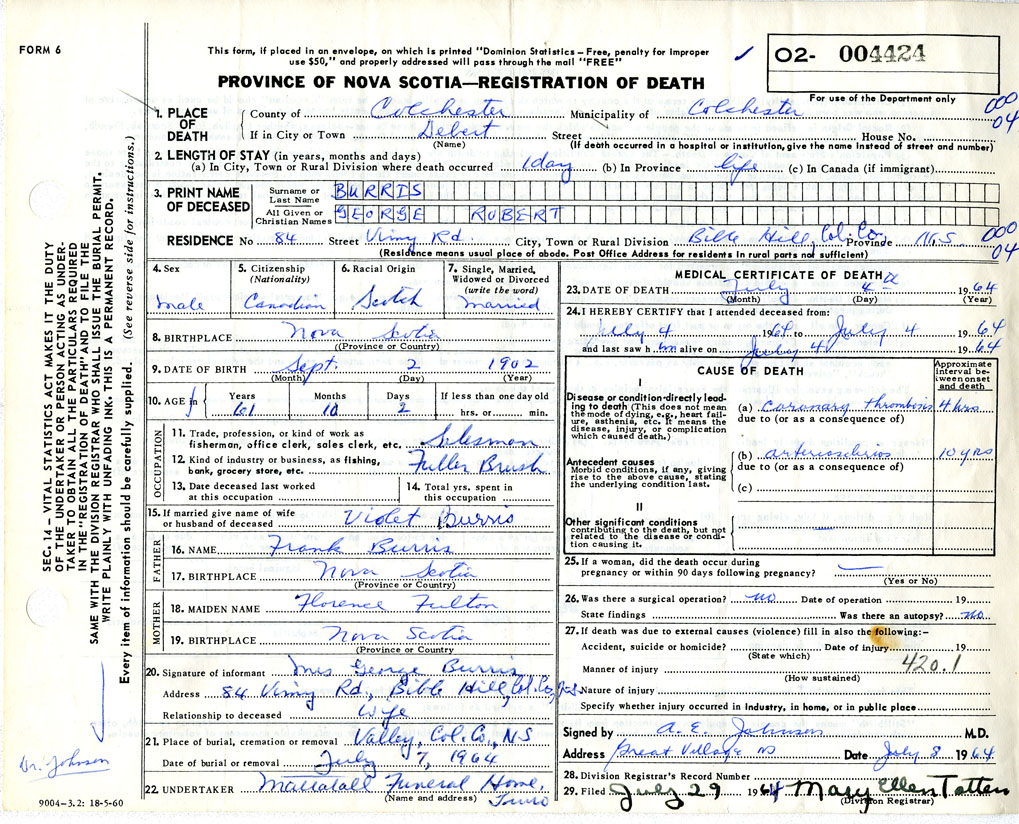 FORM 6
This form, if placed in an envelope, on which is printed "Dominion Statistics – Free, penalty for improper
use $50," and properly addressed will pass through the mail "FREE"
✓
O2- 004424
PROVINCE OF NOVA SCOTIA—REGISTRATION OF DEATH
For use of the Department only
000
04
1. PLACE OF DEATH
County of Colchester Municipality of Colchester
If in City or Town Debert Street House No.
(Name) (If death occurred in a hospital or institution, give the name instead of street and number)
2. LENGTH OF STAY (in years, months and days)
(a) In City, Town or Rural Division where death occurred 1 day (b) In Province life (c) In Canada (if immigrant)
3. PRINT NAME OF DECEASED
Surname or Last Name BURRIS
All Given or Christian Names GEORGE ROBERT
RESIDENCE No 84 Street Vimy Rd. City, Town or Rural Division Bible Hill, Col. Co. Province N.S
000
04
(Residence means usual place of abode. Post Office Address for residents in rural parts not sufficient)
4. Sex
male
5. Citizenship
(Nationality)
Canadian
6. Racial Origin
Scotch
7. Single, Married,
Widowed or Divorced
(write the word)
Married
8. BIRTHPLACE Nova Scotia
(Province or Country)
9. DATE OF BIRTH Sept. 2 1902
(Month) (Day) (Year)
10. AGE
Years Months Days If less than one day old
61 10 2 hrs. or min.
OCCUPATION
11. Trade, profession, or kind of work as
fisherman, office clerk, sales clerk, etc. Salesman
12. Kind of industry or business, as fishing,
bank, grocery store, etc. Fuller Brush
13. Date deceased last worked
at this occupation
14. Total yrs. spent in
this occupation
15. If married give name of wife
or husband of deceased Violet Burris
FATHER
16. NAME Frank Burris
17. BIRTHPLACE Nova Scotia
(Province or Country)
MOTHER
18. MAIDEN NAME Florence Fulton
19. BIRTHPLACE Nova Scotia
(Province or Country
20. Signature of informant Mrs George Burris
Address 84 Vimy Rd., Bible Hill, Col. Co, N.S
Relationship to deceased Wife
21. Place of burial, cremation or removal Valley, Col. Co., N.S
Date of burial or removal July 7, 1964
22. UNDERTAKER Mattatall Funeral Home,
(Name and address) Truro
MEDICAL CERTIFICATE OF DEATH
23. DATE OF DEATH July 4 1964
(Month) (Day) (Year)
24. I HEREBY CERTIFY that I attended deceased from:
July 4 1964 to July 4 1964
and last saw him alive on July 4 1964
CAUSE OF DEATH
Approximate
interval be-
tween onset
and death
I
Disease or condition-directly lead-
ing to death (This does not mean
the mode of dying, e.g., heart fail-
ure, asthenia, etc. It means the
disease, injury, or complication
which caused death.)
(a) Coronary thrombosis 4 hrs
due to (or as a consequence of)
Antecedent causes
Morbid conditions, if any, giving
rise to the above cause, stating
the underlying condition last.
(b) arteriosclerosis 10 yrs
due to (or as a consequence of)
(c)
II
Other significant conditions
contributing to the death, but not
related to the disease or condi-
tion causing it.
25. If a woman, did the death occur during
pregnancy or within 90 days following pregnancy?
(Yes or No)
26. Was there a surgical operation? no Date of operation 19
State findings Was there an autopsy? no
27. If death was due to external causes (violence) fill in also the following:–
Accident, suicide or homicide? Date of injury 19
(State which)
420.1
Manner of injury
(How sustained)
Nature of injury
Specify whether injury occurred in industry, in home, or in public place
Signed by A. E. Johnson M.D.
Address Great Village NS Date July 8 1964
28. Division Registrar's Record Number
29. Filed July 29 1964 Mary Ellen Totten
(Division Registrar)
SEC. 14 – VITAL STATISTICS ACT MAKES IT THE DUTY
OF THE UNDERTAKER OR PERSON ACTING AS UNDER-
TAKER TO OBTAIN ALL THE PARTICULARS REQUIRED
IN THE "REGISTRATION OF DEATH" AND TO FILE THE
SAME WITH THE DIVISION REGISTRAR WHO SHALL ISSUE THE BURIAL PERMIT.
WRITE PLAINLY WITH UNFADING INK. THIS IS A PERMANENT RECORD.
Every item of information should be carefully supplied. (See reverse side for instructions.)
Dr. Johnson
9004–3.2: 18-5-60